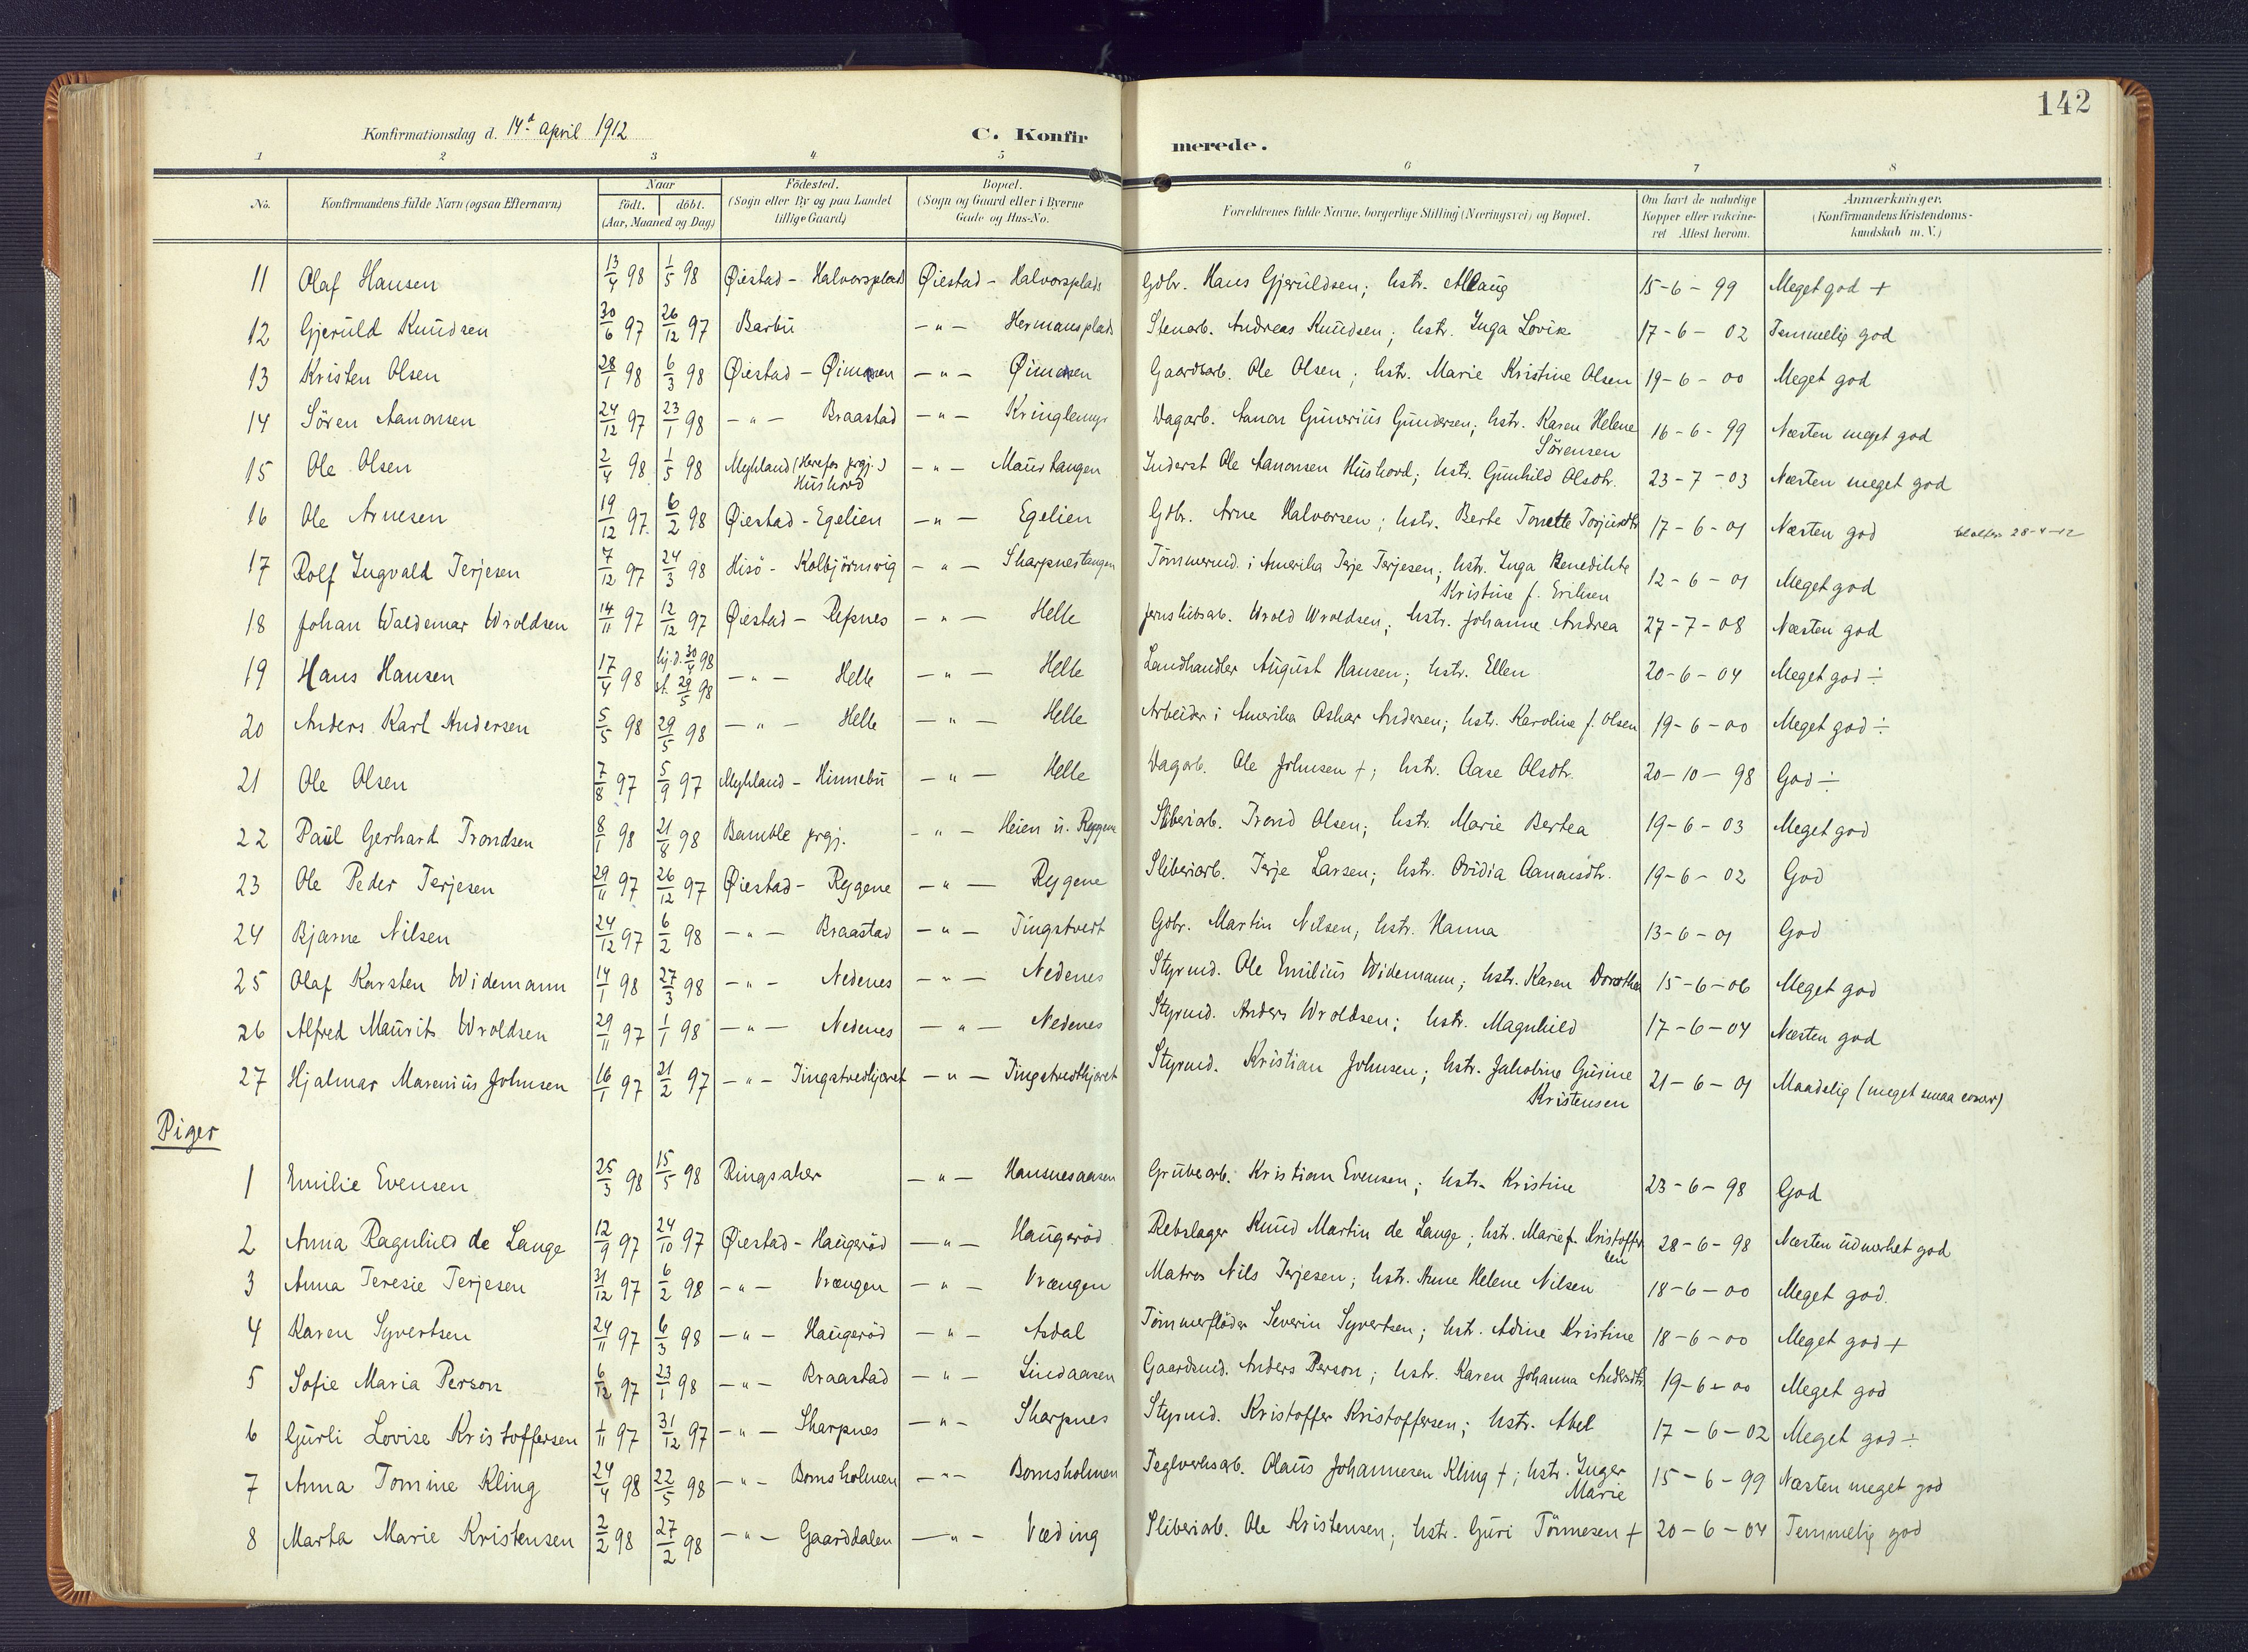 142
Konfirmationsdag d. 14d april 1912
C. Konfirmerede.
1 2 3 4 5 6 7 8
No. Konfirmandens fulde Navn (ogsaa Efternavn) Naar født. døbt. (Aar, Maaned og Dag) Födested. (Sogn eller By og paa Landet tillige Gaard) Bopæl. (Sogn og Gaard eller i Byerne Gade og Hus-No. Forældrenes fulde Navne, borgerlige Stilling (Næringsvei) og Bopæl. Om havt de naturlige Kopper eller vakcineret Attest herom. Anmærkninger. (Konfirmandens Kristendomskundskab m.V.)
11 Olaf Hansen 13/4 98 1/5 98 Øiestad - Halvorsplads Øiestad - Halvorsplads Gdbr. Hans Gjeruldsen; hstr. Allaug 15-6-99 Meget god +
12 Gjeruld Knudsen 30/6 97 26/12 97 Barbu -"- Hermansplads Stenarb. Andreas Knudsen; hstr. Inga Lovise 17-6-02 Temmelig god
13 Kristen Olsen 28/1 98 6/3 98 Øiestad - -"- Gaardsarb. Ole Olsen; hstr. Marie Kristine Olsen 19-6-00 Meget god
14 Sören Aanonsen 24/12 97 23/1 98 -"- Braastad -"- Kringlemyr Dagarb. Aanon Gunerius Gundersen; hstr. Karen Helene Sörensen 16-6-99 Næsten meget god
15 Ole Olsen 2/4 98 1/5 98 Myhland (Herefos prgj.) Hushovd -"- Maurtangen Inderst Ole Aanonsen Hushovd; hstr. Gunhild Olsdtr. 23-7-03 Næsten meget god
16 Ole Arnesen 19/12 97 6/2 98 Øiestad - Egelien -"- Egelien Gdbr. Arne Halvorsen; hstr. Berte Tonette Torjusdtr 17-6-01 Næsten god 28-4-12
17 Rolf Ingvald Terjesen 7/12 97 24/3 98 Hisö - Kolbjörnsvig -"- Skarpnestangen Tömmermd. i Amerika Terje Terjesen; hstr. Inga Benedikte Kristine f. Eriksen 12-6-01 Meget god
18 Johan Waldemar Wroldsen 14/11 97 12/12 97 Øiestad - Refsnes -"- Helle Wrold Wroldsen; hstr. Johanne Andrea 27-7-08 Næsten god
19 Hans Hansen 17/4 98 hj.d. 30/4 98 st. 29/5 98 -"- Helle -"- Helle Landhandler August Hansen; hstr. Ellen 20-6-04 Meget god ÷
20 Anders Karl Andersen 5/5 98 29/5 98 -"- Helle -"- Helle Arbeider i Amerika Oskar Andersen; hstr. Karoline f. Olsen 19-6-00 Meget god ÷
21 Ole Olsen 7/8 97 5/9 97 Myhland - Hinnebu -"- Helle Dagarb. Ole Johnsen +; hstr. Aase Olsdtr. 20-10-98 God ÷
22 Paul Gerhard Trondsen 8/1 98 21/8 98 Bamble prgj. -"- Heien u. Rygene Sliberiarb. Trond Olsen; hstr. Marie Bertea 19-6-03 Meget god
23 Ole Peder Terjesen 29/11 97 26/12 97 Øiestad - Rygene -"- Rygene Sliberiarb. Terje Larsen; hstr. Ovidia Aanansdtr. 19-6-02 God
24 Bjarne Nilsen 24/12 97 6/2 98 -"- Braastad -"- Tingstvedt Gdbr. Martin Nilsen; hstr. Hanna 13-6-01 God
25 Olaf Karsten Widemann 14/1 98 27/3 98 -"- Nedenes -"- Nedenes Styrmd. Ole Emilius Widemann; hstr. Karen Dorothea 15-6-06 Meget god
26 Alfred Maurits Wroldsen 29/11 97 1/1 98 -"- Nedenes -"- Nedenes Styrmd. Anders Wroldsen; hstr. Magnhild 17-6-04 Næsten god
27 Hjalmar Marenius Johnsen 16/1 97 21/2 97 -"- Tingstvedtkjæret -"- Tingstvedtkjæret Styrmd. Kristian Johnsen; hstr. Jakobine Gusine Kristensen 21-6-01 Maadelig (meget smaa evner)
Piger
1 Emilie Evensen 25/3 98 15/5 98 Ringsaker -"- Hansnesaasen Grubearb. Kristian Evensen; hstr. Kristine 23-6-98 God
2 Anna Ragnhild de Lange 12/9 97 24/10 97 Øiestad - Haugeröd -"- Haugeröd Rebslager Knud Martin de Lange; hstr. Marie f. Kristoffersen 28-6-98 Næsten udmerket god
3 Anna Teresie Terjesen 31/12 97 6/2 98 -"- Vrængen -"- Vrængen Matros Nils Terjesen; hstr. Anne Helene Nilsen 18-6-00 Meget god.
4 Karen Syvertsen 24/11 97 6/3 98 -"- Haugeröd -"- Asdal Tömmerflöder Severin Syvertsen; hstr. Adine Kristine 18-6-00 Meget god +
5 Sofie Maria Person 6/12 97 23/1 98 -"- Braastad -"- Lindaasen Gaardsmd. Anders Person; hstr. Karen Johanna Andersdtr 19-6-00 Meget god
6 Gurli Lovise Kristoffersen 1/11 97 31/12 97 -"- Skarpnes -"- Skarpnes Styrmd. Kristoffer Kristoffersen; hstr. Abel 17-6-02 Meget god ÷
7 Anna Tomine Kling 24/4 98 22/5 98 -"- Bomsholmen -"- Bomsholmen Teglverksarb. Olaus Johannesen Kling +; hstr. Inger Marie 15-6-99 Næsten meget god
8 Marta Marie Kristensen 2/2 98 27/2 98 -"- Gaarddalen -"- Væding Sliberiarb. Ole Kristensen; hstr. Guri Tönnesen + 20-6-04 Temmelig god